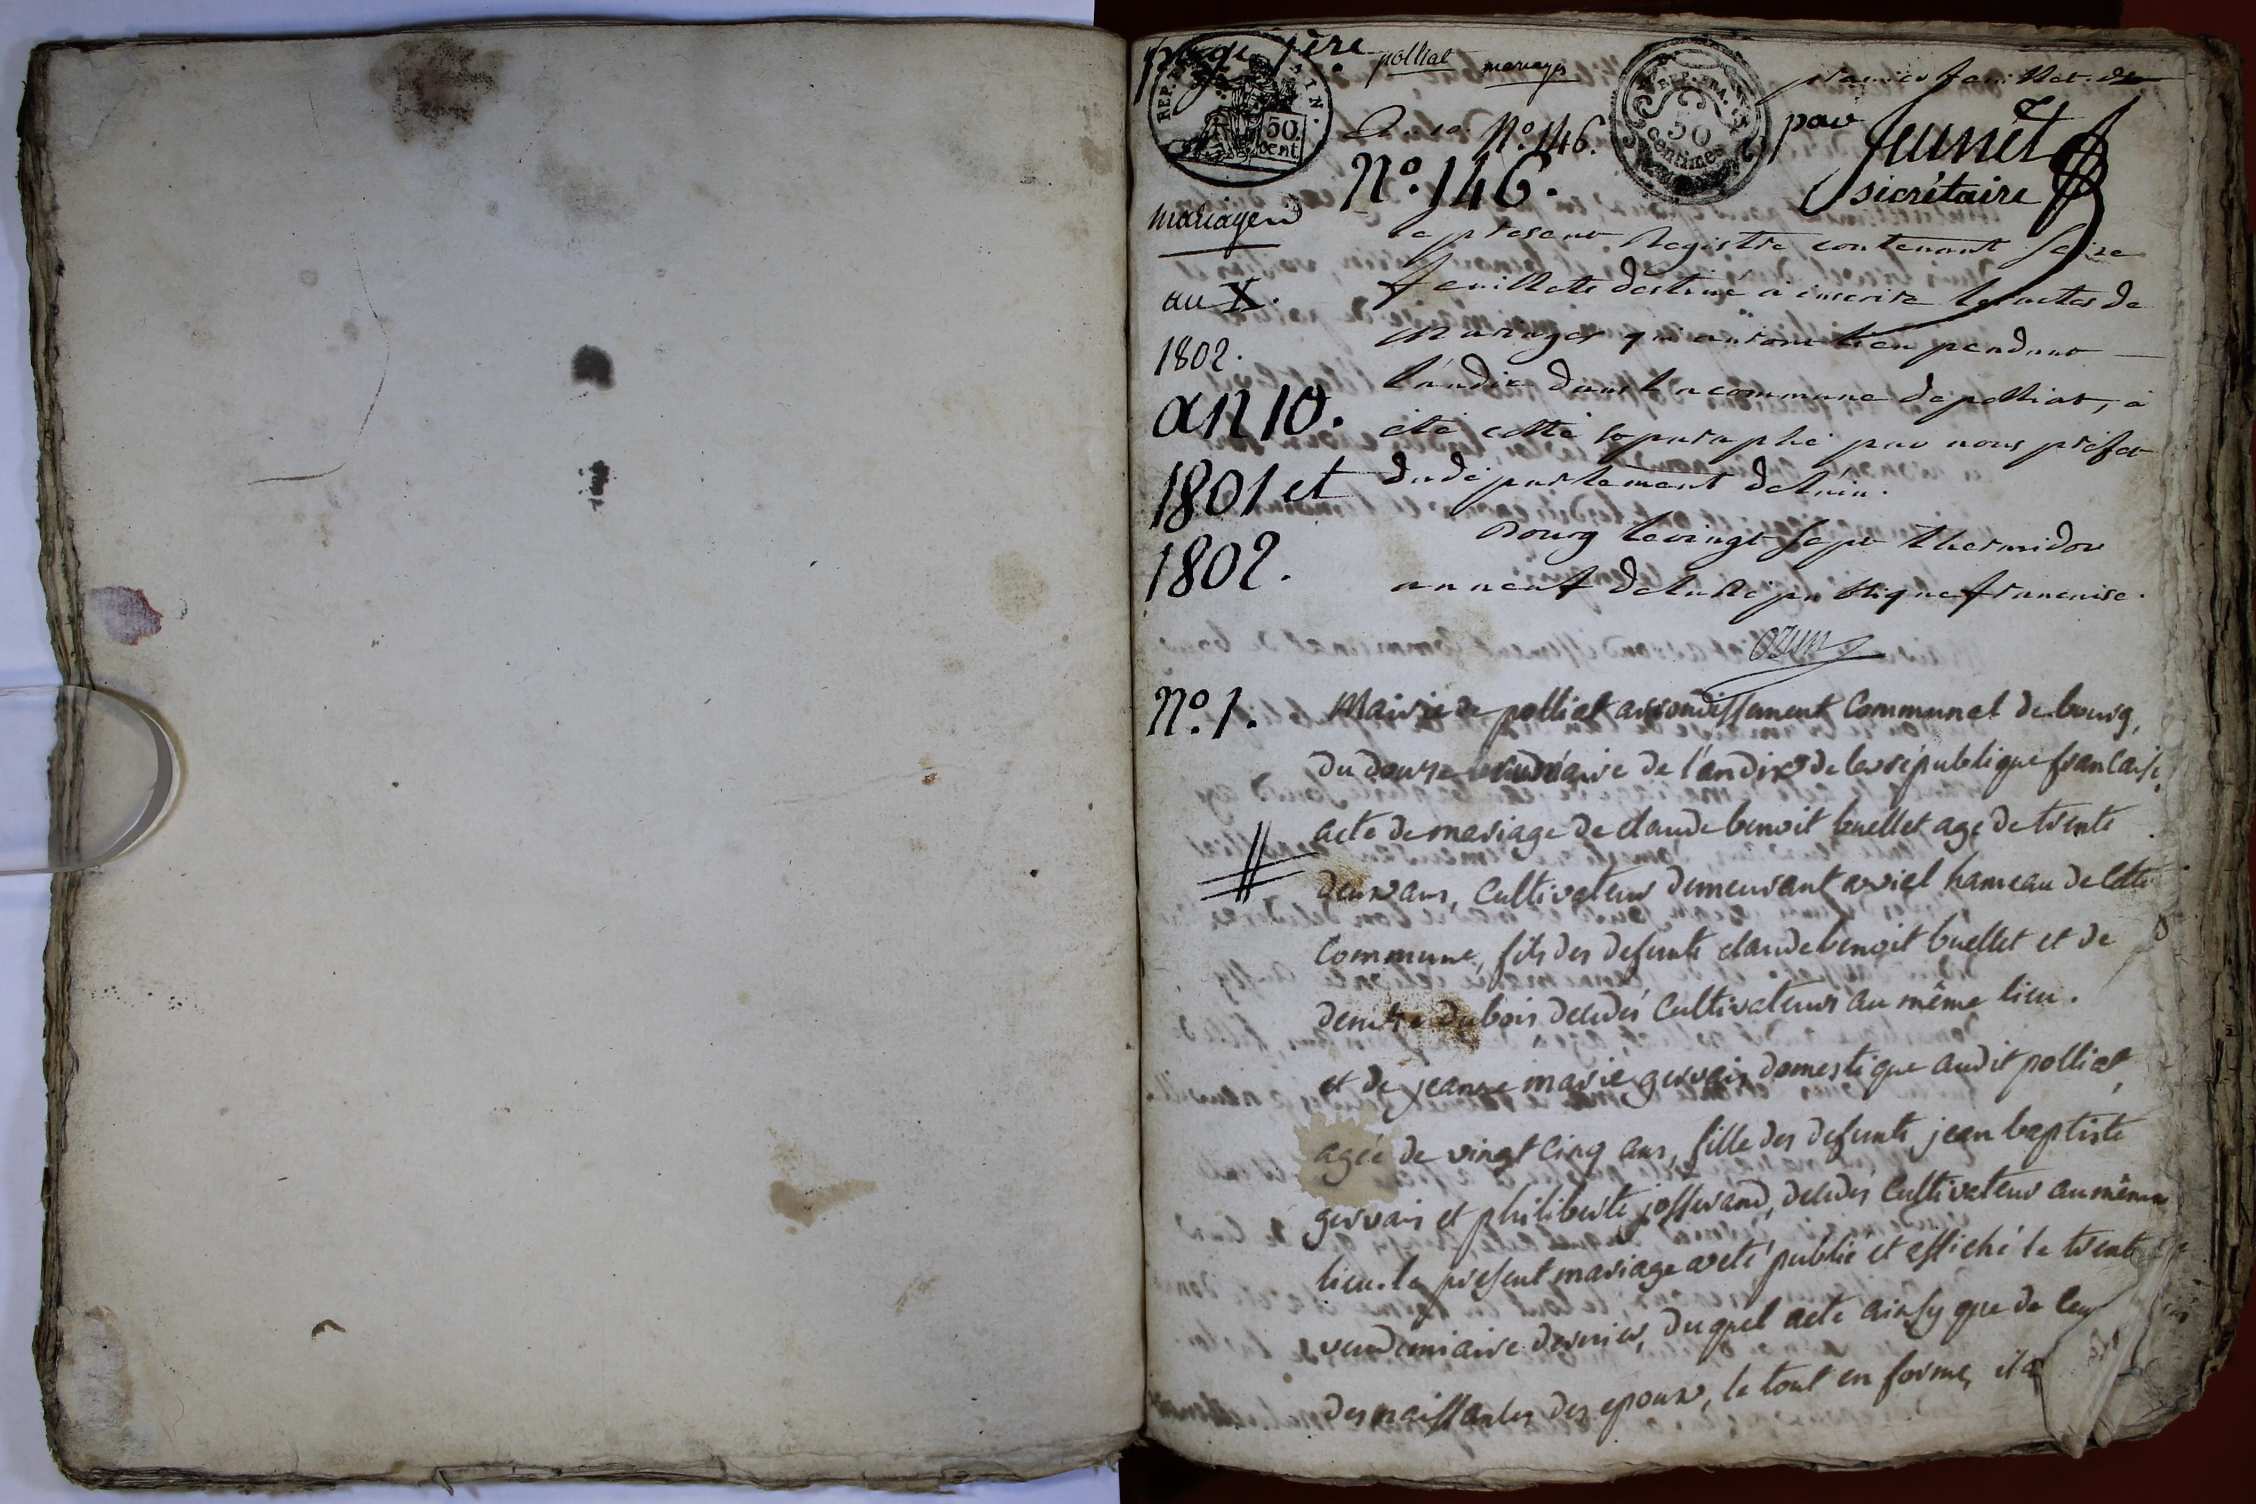 page 1ère polliat mariages
premier feuillet. de
REP. FRA.
50
centimes
50.
cent.
an 10. N.º 146.
par Junet
N.º 146.
sicrétaire
mariages
le present Registre contenant seize
feuillets destiné a inscrire les actes de
au X.
mariages qui auront lieu pendant
1802.
l'an dix dans la commune de polliat, a
an 10.
été cotté et paraphé par nous préfet
1801 et
du département de l'ain.
Bourg le vingt sept thermidor
1802.
an neuf de la République francaise.
ozun
N.º 1.
Mairie de polliat arrondissement Communal de bourg,
du douze de l'an dix de la république francaise,
acte de mariage de claude benoit buellet agé de trente
deux ans, Cultivateur demeurant a viel hameau de cette
Commune, fils des defunts claude benoit buellet et de
denise dubois décédés Cultivateurs au même lieu.
et de jeanne marie gervais domestique audit polliat,
agée de vingt cinq ans, fille des defunts jean baptiste
gervais et philiberte josserand, décédés Cultivateurs au même
lieu. le présent mariage a eté publié et affiché le trente
vendemiaire dernier, duquel acte ainsy que de ceux
des naissances des epoux, le tout en forme, il a